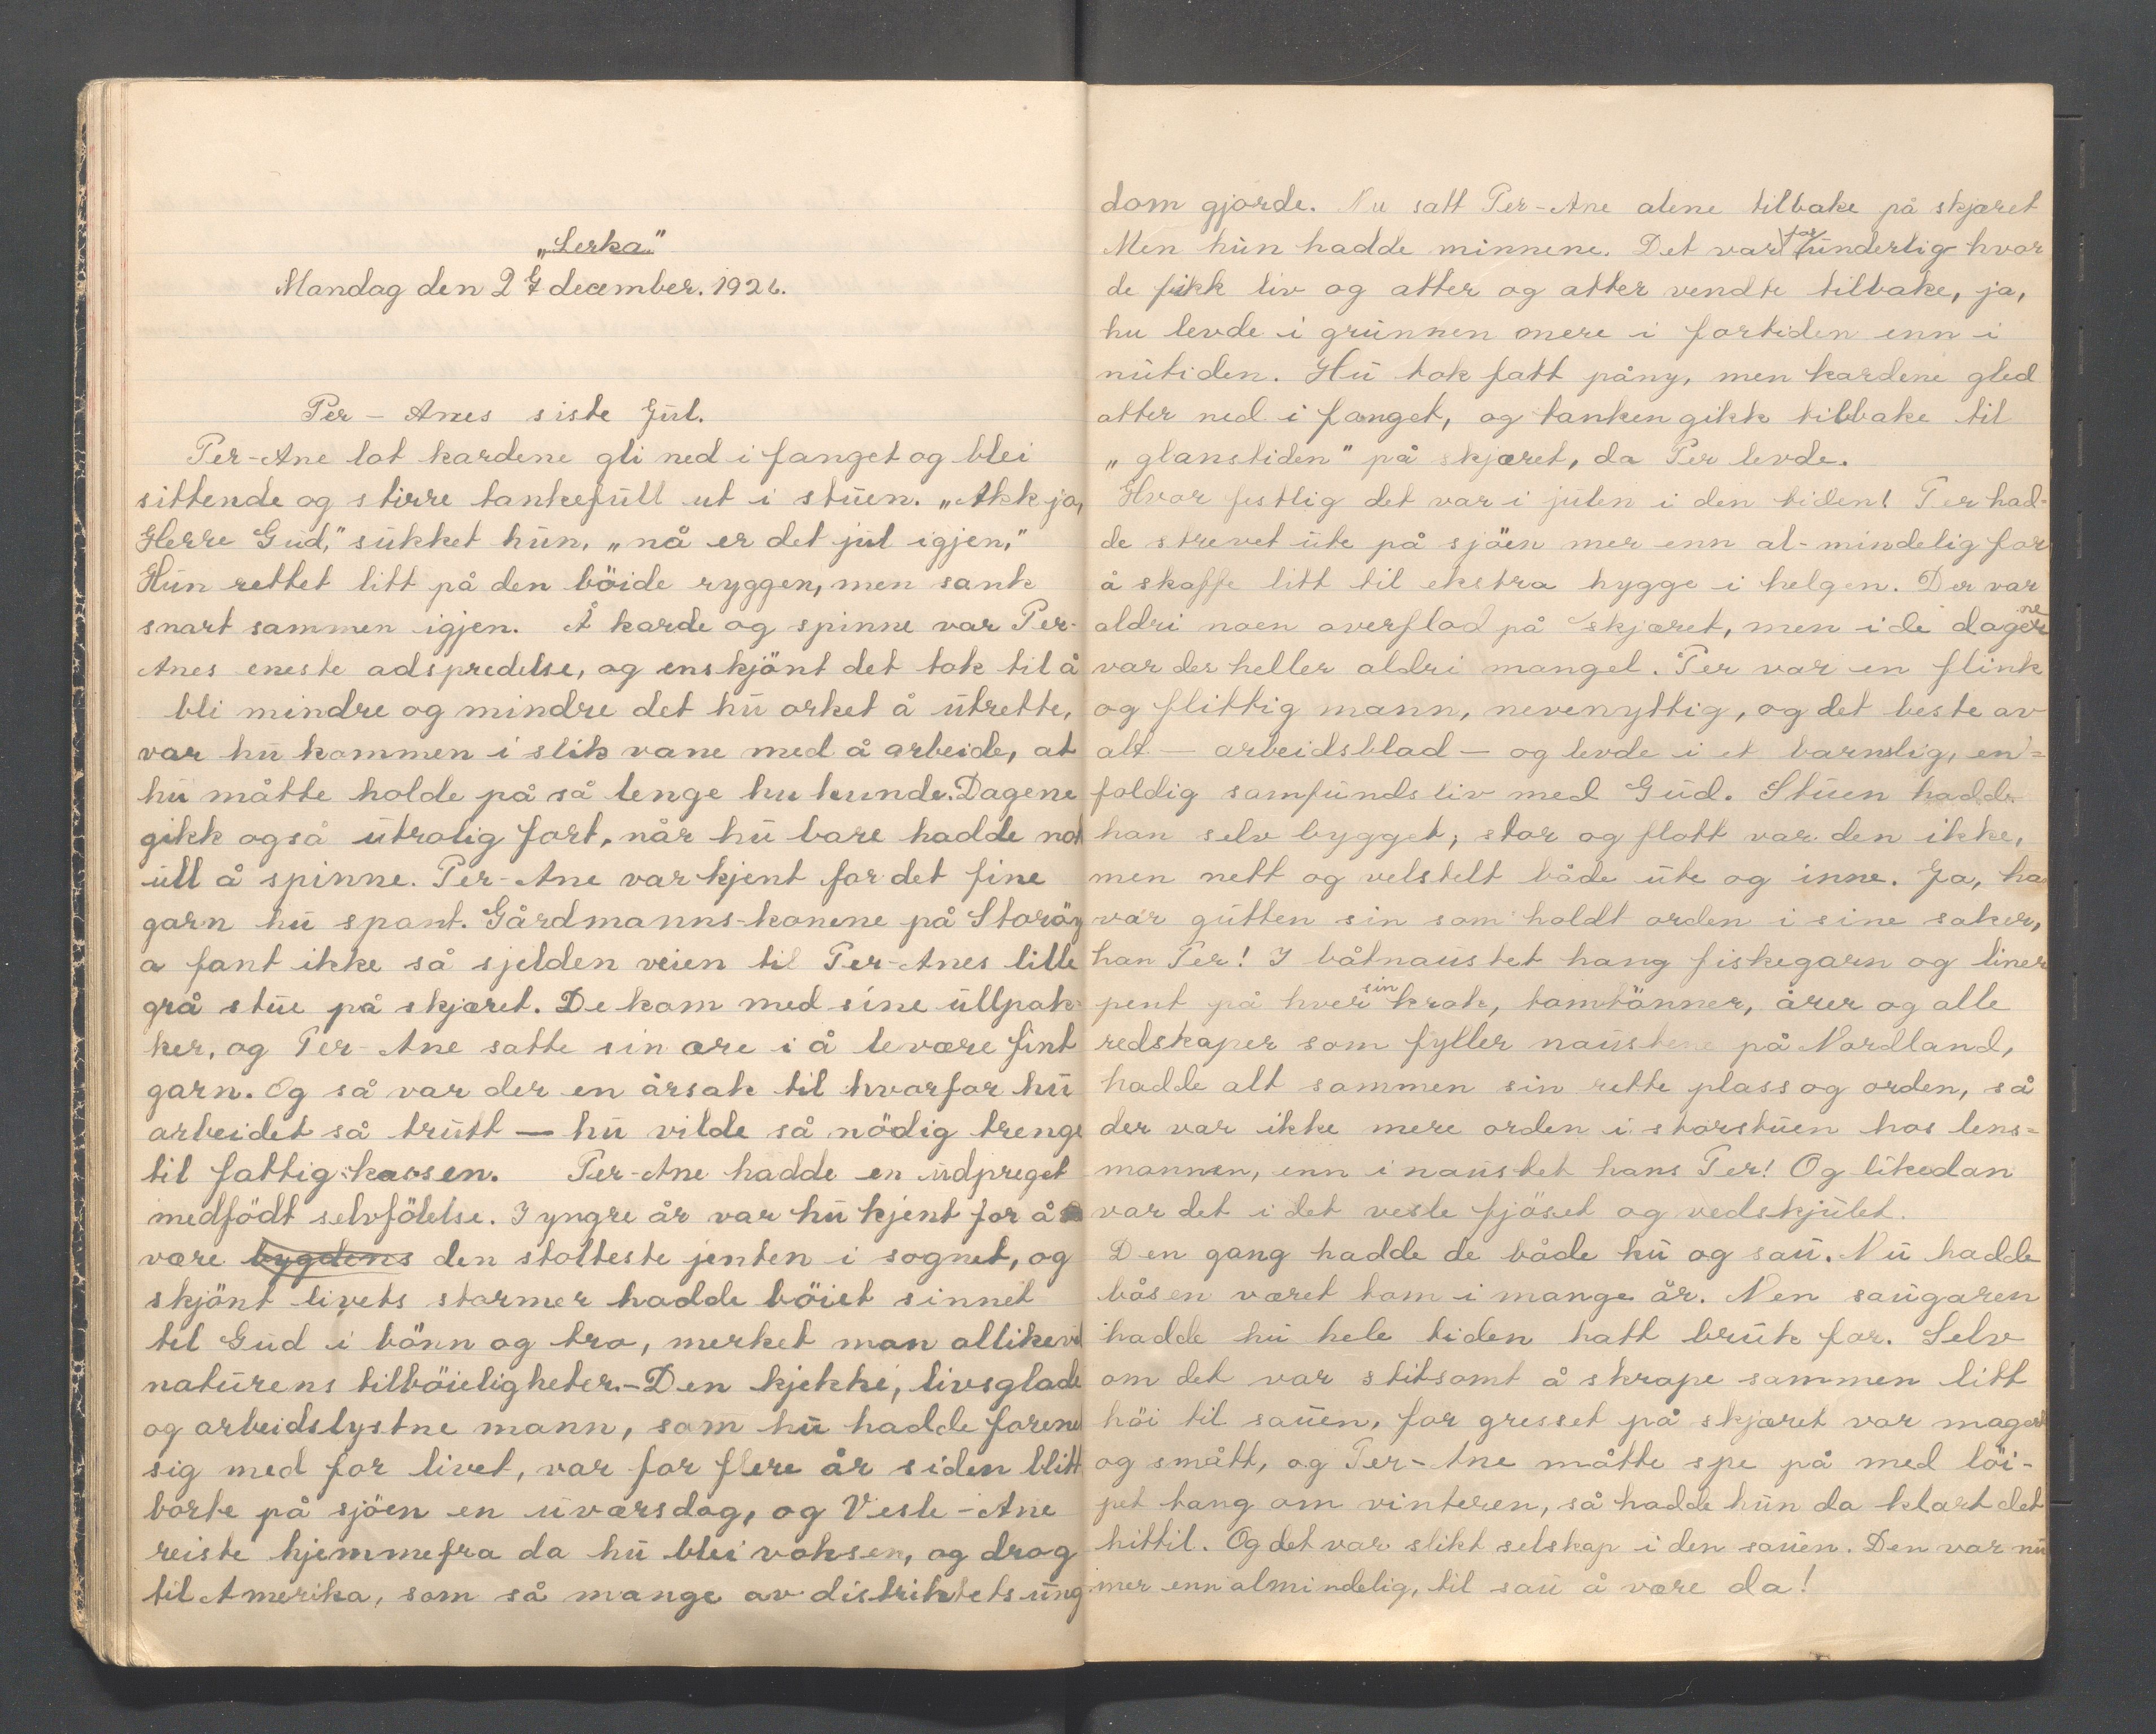 „Lerka"
Mandag den 27 december. 1926.
Per - Anes siste Jul.
Per-Ane lot kardene gli ned i fanget og blei
sittende og stirre tankefull ut i stuen. „Akk ja,
Herre Gud," sukket hun, „nå er det jul igjen,"
Hun rettet litt på den böide ryggen, men sank
snart sammen igjen. Å karde og spinne var Per-
Anes eneste adspredelse, og enskjönt det tok til å
bli mindre og mindre det hu orket å utrette,
var hu kommen i slik vane med å arbeide, at
hu måtte holde på så lenge hu kunde. Dagene
gikk også utrolig fort, når hu bare hadde nok
ull å spinne. Per-Ane var kjent for det fine
garn hu spant. Gårdmanns-konene på Storöy
a fant ikke så sjelden veien til Per-Anes lille
grå stue på skjæret. De kom med sine ullpak-
ker, og Per-Ane satte sin ære i å levære fint
garn. Og så var der en årsak til hvorfor hu
arbeidet så trutt — hu vilde så nödig trenge
til fattig-kassen. Per-Ane hadde en udpreget
medfödt selvfölelse. I yngre år var hu kjent for å
være bygdens den stolteste jenten i sognet, og
skjönt livets stormer hadde böiet sinnet
til Gud i bönn og tro, merket man allikevel
naturens tilböieligheter. - Den kjekke, livsglade
og arbeidslystne mann, som hu hadde forenet
sig med for livet, var for flere år siden blitt
borte på sjöen en uværsdag, og Vesle-Ane
reiste hjemmefra da hu blei voksen, og drog
til Amerika, som så mange av distriktets ung
dom gjorde. Nu satt Per-Ane alene tilbake på skjæret
Men hun hadde minnene. Det var for underlig hvor
de fikk liv og atter og atter vendte tilbake, ja,
hu levde i grunnen mere i fortiden enn i
nutiden. Hu tok fatt påny, men kardene gled
atter ned i fanget, og tanken gikk tilbake til
„glanstiden" på skjæret, da Per levde.
Hvor festlig det var i julen i den tiden! Per had-
de strevet ute på sjöen mer enn al-mindelig for
å skaffe litt til ekstra hygge i helgen. Der var
aldri noen overflod på skjæret, men i de dagene
var der heller aldri mangel. Per var en flink
og flittig mann, nevenyttig, og det beste av
alt — arbeidsglad — og levde i et barnslig, en=
foldig samfundsliv med Gud. Stuen hadde
han selv bygget; stor og flott var den ikke,
men nett og velstelt både ute og inne. Ja, han
var gutten sin som holdt orden i sine saker,
han Per! I båtnaustet hang fiskegarn og liner
pent på hver sin krok, tomtönner, årer og alle
redskaper som fyller naustene på Nordland,
hadde alt sammen sin rette plass og orden, så
der var ikke mere orden i storstuen hos lens=
mannen, enn i naustet hans Per! Og likedan
var det i det vesle fjöset og vedskjulet.
Den gang hadde de både ku og sau. Nu hadde
båsen været tom i mange år. Men saugaren
hadde hu hele tiden hatt bruk for. Selv
om det var slitsomt å skrape sammen litt
höi til sauen, for gresset på skjæret var magert
og smått, og Per-Ane måtte spe på med löi-
pet tang om vinteren, så hadde hun da klart det
hittil. Og det var slikt selskap i den sauen. Den var nu
mer enn almindelig, til sau å være da!